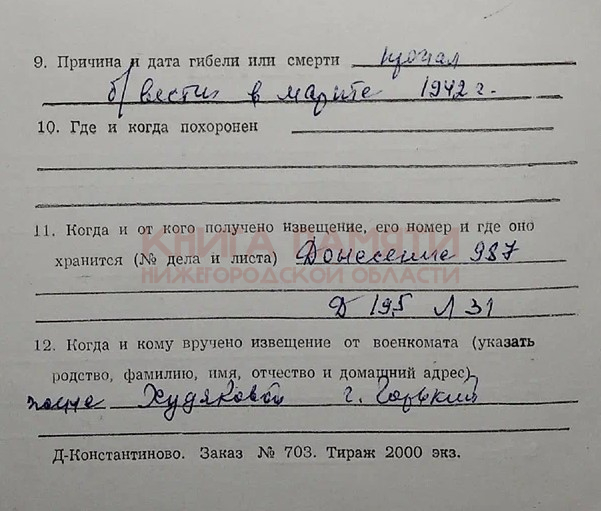 9. Причина и дата гибели или смерти пропал
б/вести в марте 1942 г.
10. Где и когда похоронен
11. Когда и от кого получено извещение, его номер и где оно
КНИГА ПАМЯТИ
хранится (№ дела и листа) Донесение 987
НИЖЕГОРОДСКОЙ ОБЛАСТИ
Д 195 Л 31
12. Когда и кому вручено извещение от военкомата (указать
родство, фамилию, имя, отчество и домашний адрес)
Худяковой г. Горький
Д-Константиново. Заказ № 703. Тираж 2000 экз.